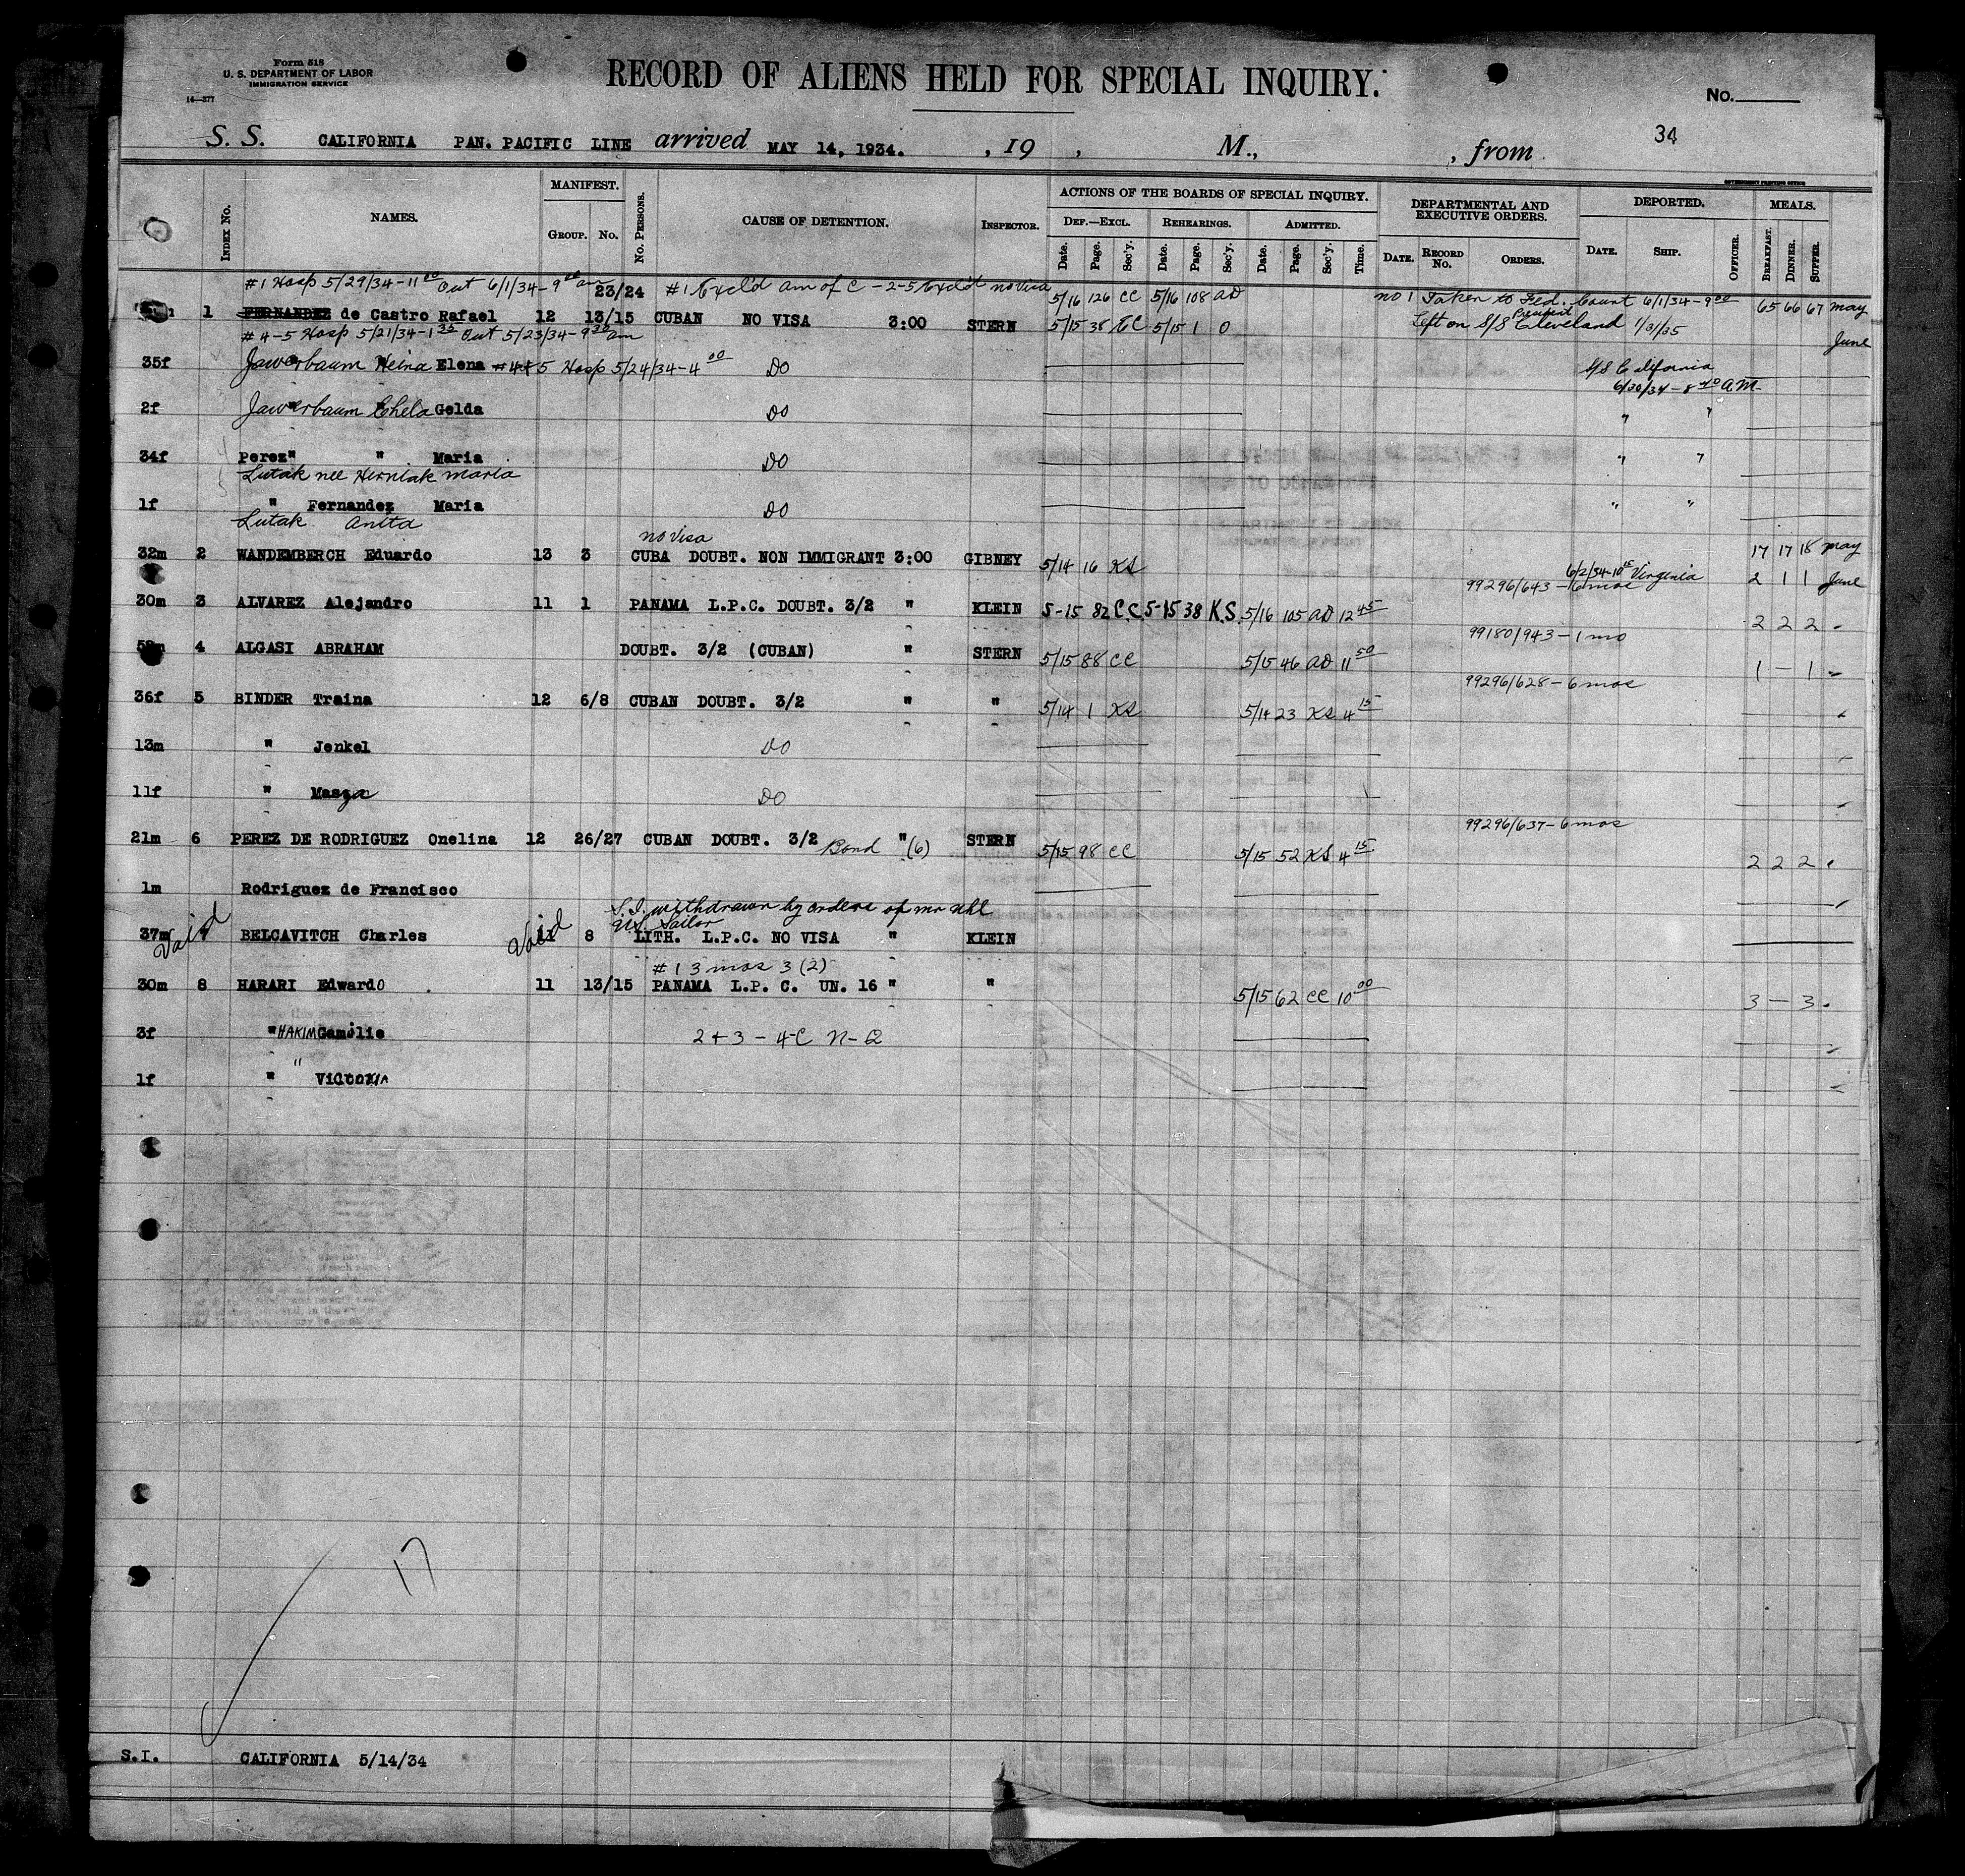 Form 518
U. S. DEPARTMENT OF LABOR
IMMIGRATION SERVICE
14—377
RECORD OF ALIENS HELD FOR SPECIAL INQUIRY.
No.
34
S. S. CALIFORNIA PAN. PACIFIC LINE arrived MAY 14, 1934. , 19 , M., , from
GOVERNMENT PRINTING OFFICE
Index No. NAMES. MANIFEST. Group. No. No. Persons. CAUSE OF DETENTION. Inspector. ACTIONS OF THE BOARDS OF SPECIAL INQUIRY. DEPARTMENTAL AND EXECUTIVE ORDERS. DEPORTED. MEALS.
Def.—Excl. Rehearings. Admitted.
Date. Page. Sec'y. Date. Page. Sec'y. Date. Page. Sec'y. Time. Date. Record No. Orders. Date. Ship. Officer. Breakfast. Dinner. Supper.
#1 Hosp 5/29/34-11 00 Out 6/1/34-9 00 am 23/24 #1 Excld Am of C - 2-5 Excl'd no visa 5/16 126 CC 5/16 108 AD no 1 Taken to Fed. Court 6/1/34-9 00 65 66 67 May
1 FERNANDEZ de Castro Rafael 12 13/15 CUBAN NO VISA 3:00 STERN 5/15 38 EC 5/15 1 O Left on S/S President Cleveland 1/31/35
#4-5 Hosp 5/21/34-1 35 Out 5/23/34-9 30 am June
35f Jawerbaum Heina Elena #4+5 Hosp 5/24/34-4 00 DO S/S California
6/30/34-8 40 A.M.
2f Jawerbaum Chela Golda DO " "
34f Perez " " Maria DO " "
Lutak nee Herniak Maria
1f " Fernandez Maria DO " "
Lutak Anita
no visa
32m 2 WANDEMBERCH Eduardo 13 3 CUBA DOUBT. NON IMMIGRANT 3:00 GIBNEY 5/14 16 KS 17 17 18 May
6/2/34-10 15 Virginia
99296/643 - 6 mos 2 1 1 June
30m 3 ALVAREZ Alejandro 11 1 PANAMA L.P.C. DOUBT. 3/2 " KLEIN 5-15 82 C.C. 5-15 38 K.S. 5/16 105 AD 12 45 2 2 2 "
99180/943 - 1 mo
4 ALGASI ABRAHAM DOUBT. 3/2 (CUBAN) " STERN 5/15 88 CC 5/15 46 AD 11 50 1 - 1 "
99296/628 - 6 mos
36f 5 BINDER Traina 12 6/8 CUBAN DOUBT. 3/2 " " 5/14 1 KS 5/14 23 KS 4 15
13m " Jenkel DO
11f " Masza DO
99296/637 - 6 mos
21m 6 PEREZ DE RODRIGUEZ Onelina 12 26/27 CUBAN DOUBT. 3/2 Bond " (6) STERN 5/15 98 CC 5/15 52 KS 4 15 2 2 2 "
1m Rodriguez de Francisco
S.I. withdrawn by orders of Mr Uhl
U.S. Sailor
Void 37m BELCAVITCH Charles Void 11 8 LITH. L.P.C. NO VISA " KLEIN
#1 3 mos 3 (2)
30m 8 HARARI Edwardo 11 13/15 PANAMA L.P. C. UN. 16 " " 5/15 62 CC 10 00 3 - 3 "
3f " HAKIM Gamelie 2+3 - 4-C N-Q
1f " " VICTORIA
17
S.I. CALIFORNIA 5/14/34